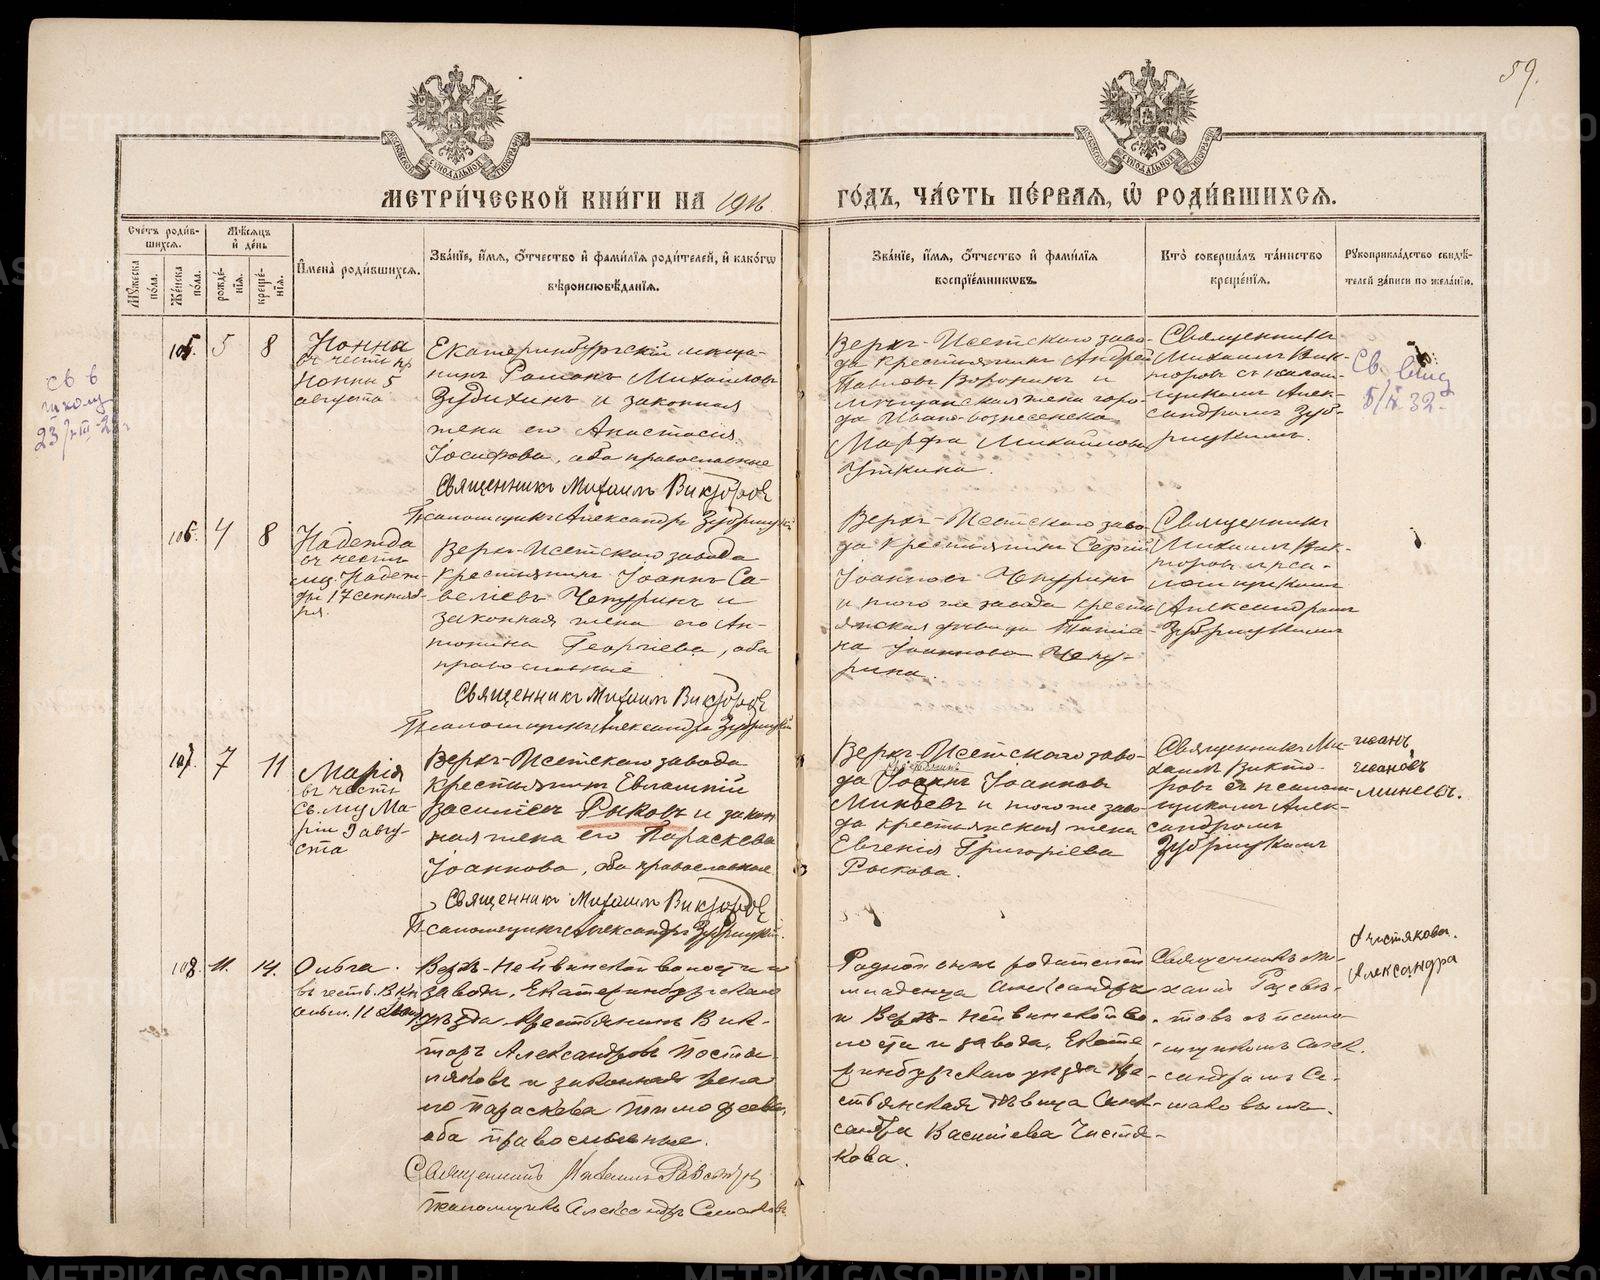 59.
МЕТРИ́ЧЕСКОЙ КНИ́ГИ НА 1916
ГО́ДЪ, ЧА́СТЬ ПЕ́РВАЯ, Ѿ РОДИ́ВШИХСЯ.
Сче́тъ роди́в-
шихся.
Мѣ́сяцъ
и҆ де́нь
Му́жеска по́ла.
Же́нска по́ла.
рожде́-
нїя.
креще́-
нїя.
И҆мена̀ роди́вшихся.
Зва́нїе, и҆́мя, ѻ҆́тчество и҆ фами́лїя роди́телей, и҆ како́гѡ
вѣроисповѣ́данїя.
Зва́нїе, и҆́мя, ѻ҆́тчество и҆ фами́лїя
воспрїе́мникѡвъ.
Кто̀ соверша́лъ та́инство
креще́нїя.
Рꙋкоприкла́дство свидѣ́-
телей за́писи по жела́нїю.
105. 5 8
Нонна
въ честь пр
Нонны 5
августа
Екатеринбургскій мѣща-
нинъ Романъ Михаиловъ
Зудихинъ и законная
жена его Анастасія
Іосифова, оба православные
Священникъ Михаилъ Викторовъ
Псаломщикъ Александръ Зубрицкій
Верхъ-Исетскаго заво-
да крестьянинъ Андрей
Павловъ Воронинъ и
мѣщанская жена горо-
да Ивано-вознесенска
Марфа Михайлова
Уткина.
Священникъ
Михаилъ Вик-
торовъ съ псалом-
щикомъ Алек-
сандромъ Зуб-
рицкимъ.
106. 4 8
Надежда
въ честь
муч. Надеж-
ды 17 сентяб-
ря.
Верхъ-Исетскаго завода
крестьянинъ Іоаннъ Са-
велievъ Чепуринъ и
законная жена его Ан-
тонина Георгіева, оба
православные
Священникъ Михаилъ Викторовъ
Псаломщикъ Александръ Зубрицкій
Верхъ-Исетскаго заво-
да крестьянинъ Сергій
Іоанновъ Чепуринъ
и того же завода кресть
янская дѣвица Татіа-
на Іоаннова Чепу-
рина.
Священникъ
Михаилъ Вик-
торовъ и пса-
ломщикомъ
Александромъ
Зубрицкимъ
107. 7 11
Марія
въ честь
Св. муч Ма-
ріи 9 авгу-
ста
Верхъ-Исетскаго завода
крестьянинъ Евлампій
Василіевъ Рыковъ и закон
ная жена его Параскева
Іоаннова, оба православные
Священникъ Михаилъ Викторовъ
Псаломщикъ Александръ Зубрицкій.
Верхъ-Исетскаго заво-
да Іоаннъ Іоанновъ
Минѣевъ и того же заво-
да крестьянская жена
Евгенія Григоріева
Рыкова.
Священникъ Ми-
хаилъ Викто-
ровъ съ псалом-
щикомъ Алек-
сандромъ
Зубрицкимъ
иванъ
ивановъ
минеевъ.
108. 11. 14.
Ольга.
въ честь. В. Кн
Верхъ-Нейвинской волости и
завода, Екатеринбургскаго
уѣзда, крестьянинъ Вик-
торъ Александровъ Посты-
ляковъ и законная жена
его Параскева Тимофеева,
оба православные.
Священникъ Михаилъ
Псаломщикъ Александръ
Родной отецъ родителей
младенца Александръ
и Верхъ-Нейвинской во-
лости и завода, Екате-
ринбургскаго уѣзда кре-
стьянская дѣвица Алек-
сандра Васильева Чистя-
кова.
Священникъ Ми-
хаилъ
товъ съ псало-
мщикомъ Алек-
сандромъ Си-
маковымъ.
Чистякова.
Александра